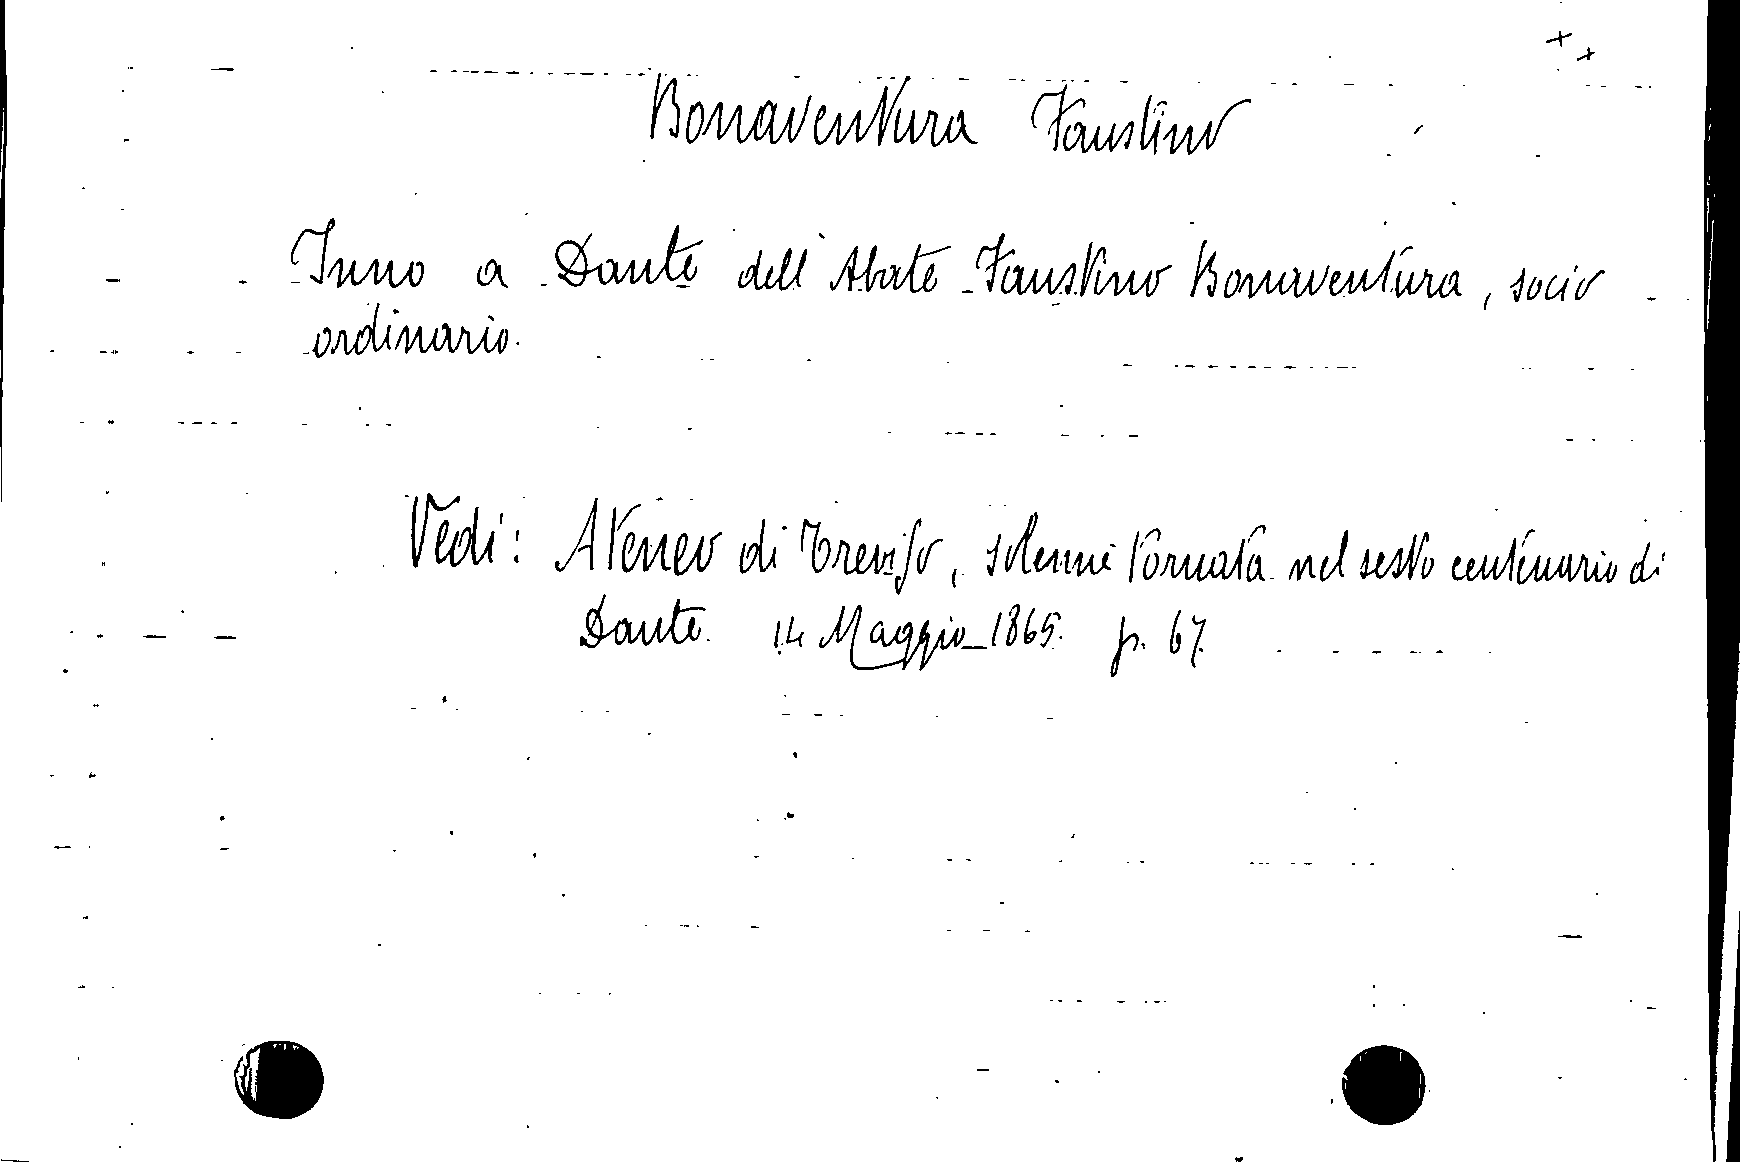 Bonaventura Faustino
Inno a Dante dell'Abate Faustino Bonaventura, socio
ordinario.
Vedi: Ateneo di Treviso, solenne tornata nel sesto centenario di
Dante. 14 Maggio 1865. p. 67.